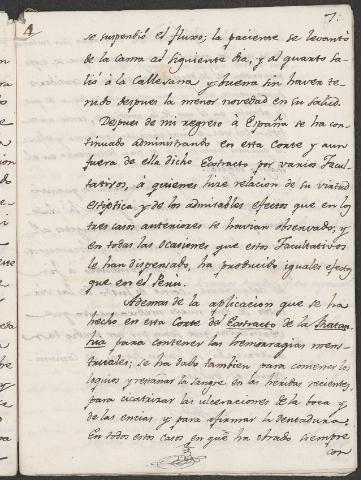 7.
se suspendió el fluxo; la paciente se levantó
de la cama al siguiente dia, y al quarto sa-
lió à la Calle sana y buena sin haver te-
nido despues la menor novedad en su salud.
Despues de mi regreso à España se ha con-
tinuado administrando en esta Corte y aun
fuera de ella dicho Extracto por varios Facul-
tativos, à quienes hize relacion de su virtud
estiptica y de los admirables efectos que en los
tres casos anteriores se havian observado; y
en todas las ocasiones que estos Facultativos
le han dispensado, ha producido iguales efectos
que en el Peru.
Ademas de la aplicacion que se ha
hecho en esta Corte del Extracto de la Ratan-
hia para contener las hemorragias mens-
truales; se ha dado tambien para contener los
loquios y restañar la sangre en las heridas recientes,
para cicatrizar las ulceraciones de la boca y
de las encias y para afirmar la dentadura.
En todos estos casos en que ha obrado siempre
con